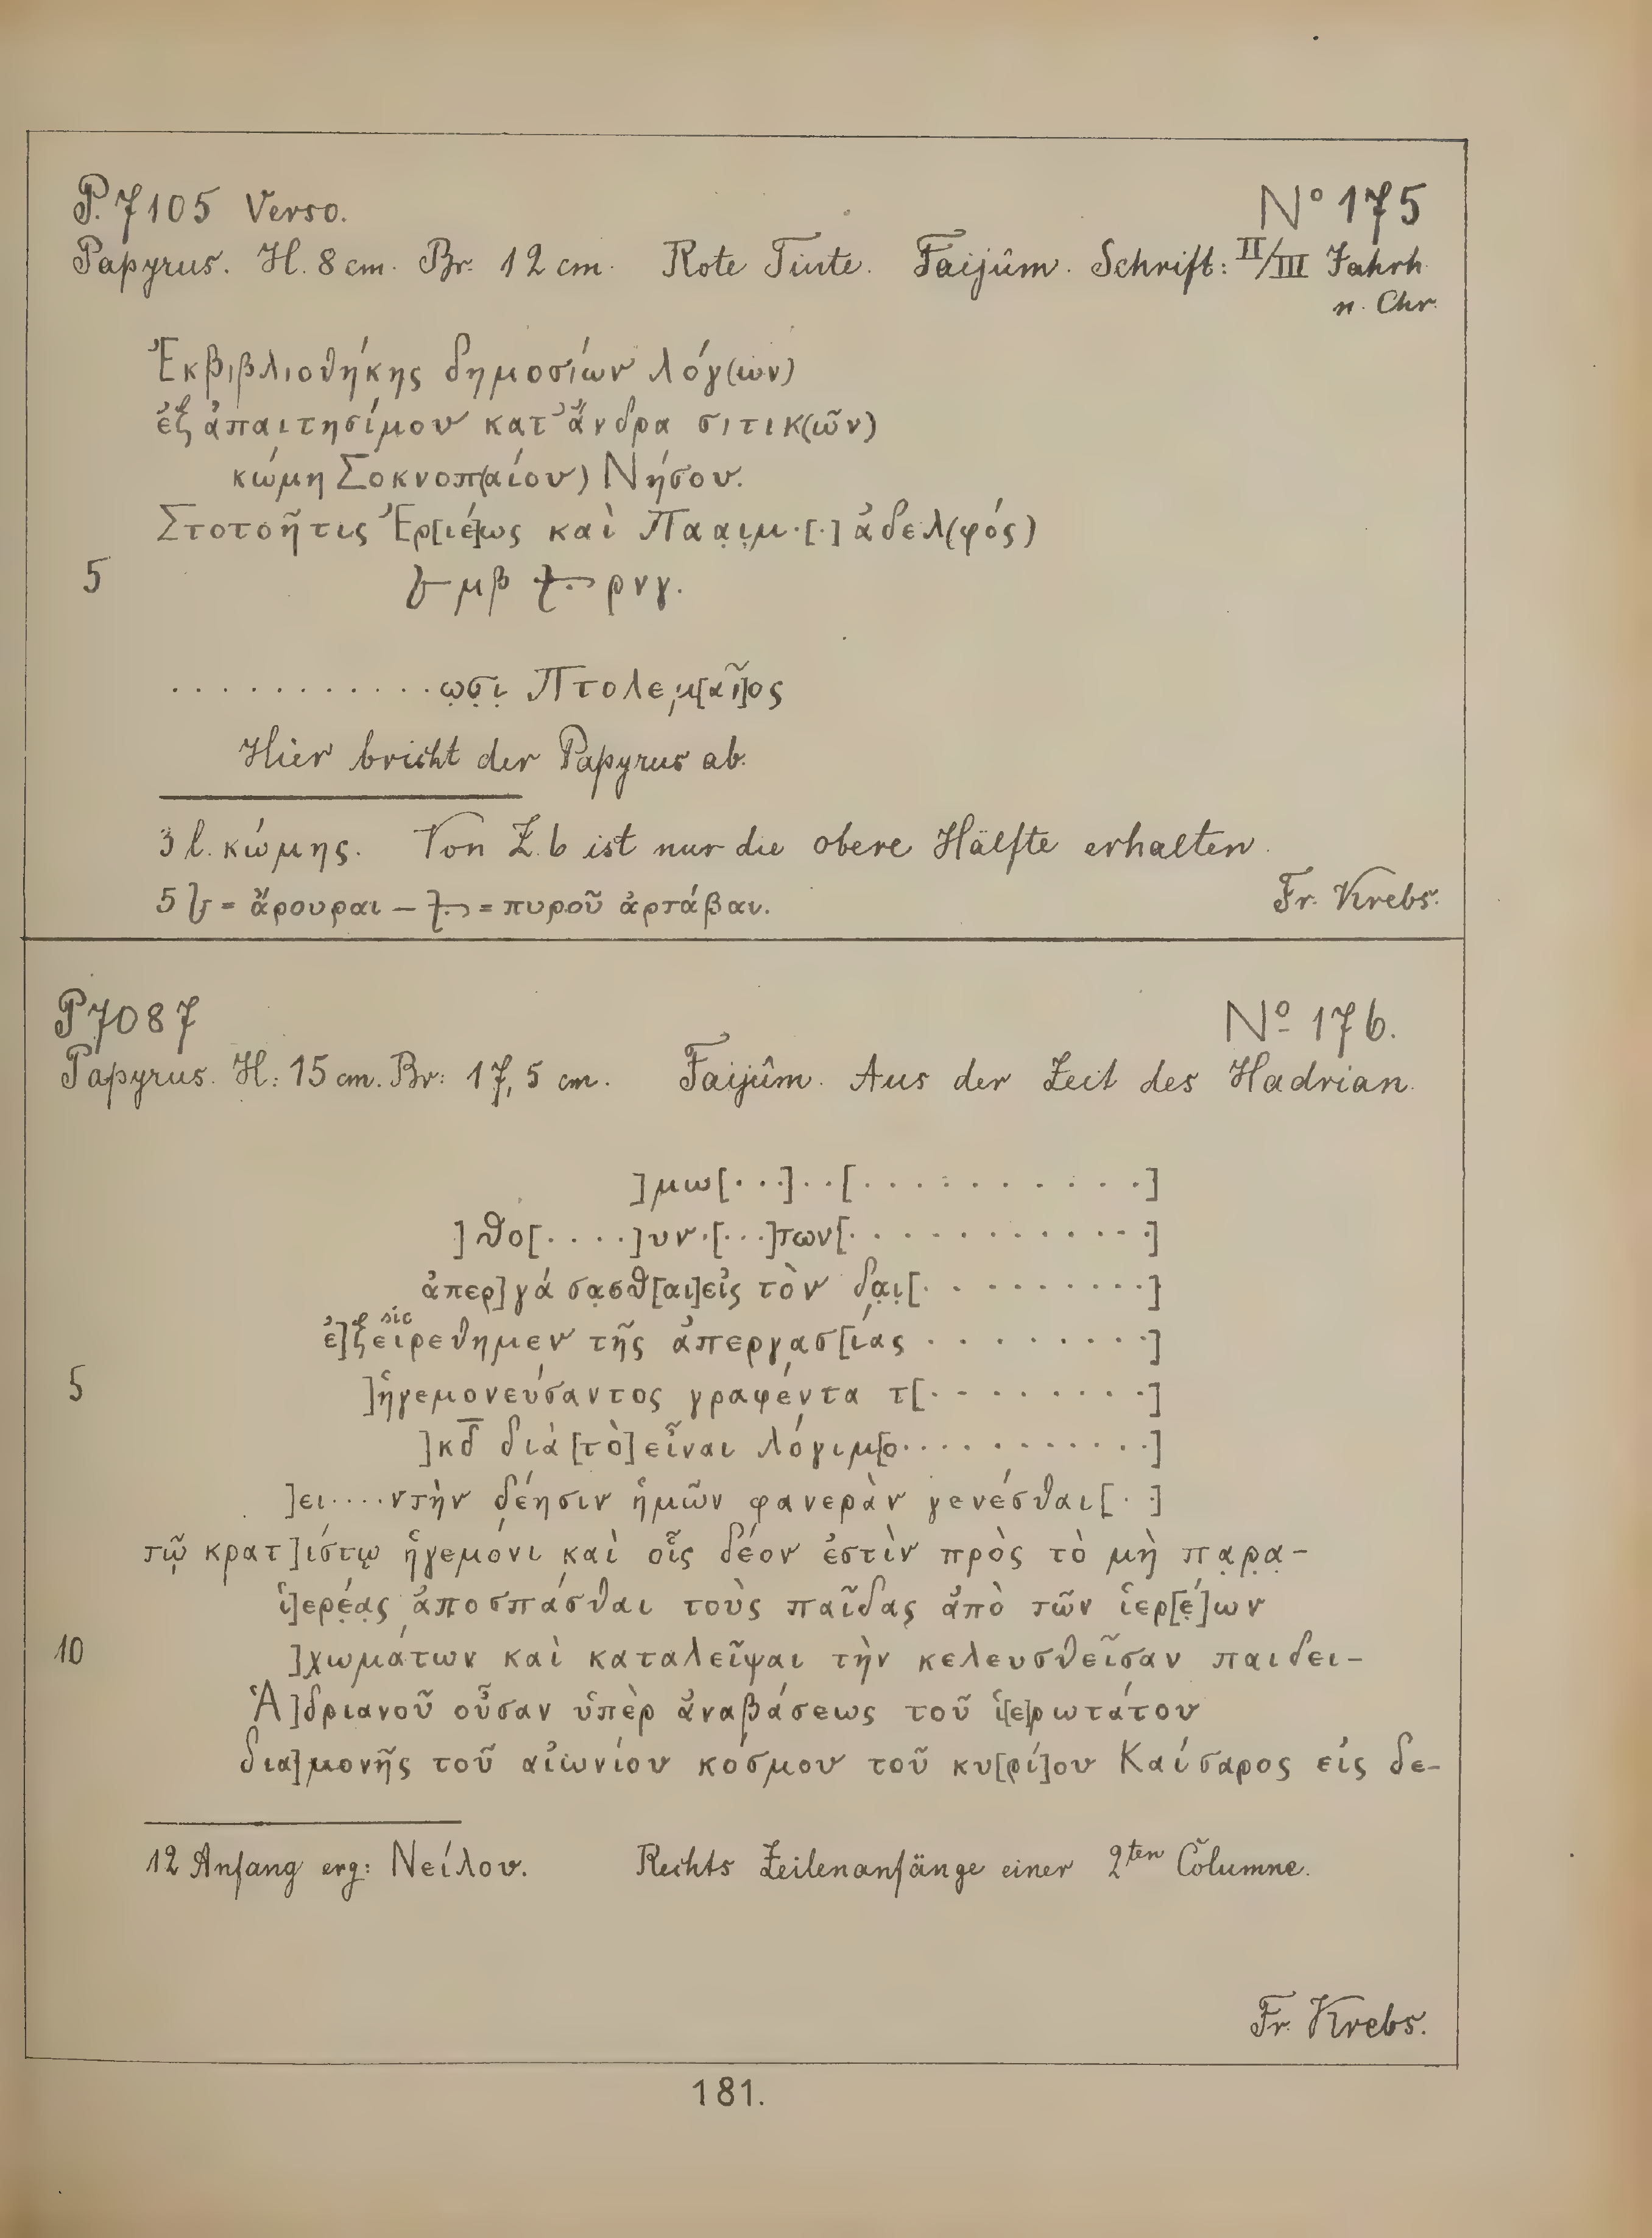 P. 7105 Verso. N° 175
Papyrus. H. 8 cm. Br. 12 cm. Rote Tinte. Faijûm. Schrift: II/III Jahrh.
n. Chr.
Ἐκβιβλιοθήκης δημοσίων λόγ(ων)
ἐξ ἀπαιτησίμου κατ' ἄνδρα σιτικ(ῶν)
κώμη Σοκνοπ(αίου) Νήσου.
Στοτοῆτις Ἐρ[ιέ]ως καὶ Παα̣ι̣μ·[·] ἀδελ(φός)
5 μβ ρνγ.
· · · · · · · · · · · ω̣σ̣ι̣ Πτολεμ̣[αῖ]ος
Hier bricht der Papyrus ab.
3 l. κώμης. Von Z. 6 ist nur die obere Hälfte erhalten.
5 = ἄρουραι — = πυροῦ ἀρτάβαι.
Fr. Krebs.
P 7087 No 176.
Papyrus. H: 15 cm. Br: 17,5 cm. Faijûm. Aus der Zeit des Hadrian.
]μω[···]··[· · · · · · · · · · ·]
]θο[· · · ·]υν·[···]των[· · · · · · · · · · · ·]
ἀπερ]γάσα̣σθ[αι] εἰς τὸν δα̣ι̣[· · · · · · · · ·]
ἐ]ξειρεθημεν sic τῆς ἀπεργασ[ίας · · · · · · · ·]
5 ]ἡγεμονεύσαντος γραφέντα τ[· · · · · · · ·]
]κδ̅ διὰ [τὸ] εἶναι λόγιμ[ο· · · · · · · · · · ·]
]ει····ντὴν δέησιν ἡμῶν φανερὰν γενέσθαι[· ·]
τῷ κρατ]ίστῳ ἡγεμόνι καὶ οἷς δέον ἐστὶν πρὸς τὸ μὴ πα̣ρ̣α̣-
ἱ]ερέ̣α̣ς ἀποσπάσθαι τοὺς παῖδας ἀπὸ τῶν ἱερ[έ̣]ων
10 ]χωμάτων καὶ καταλεῖψαι τὴν κελευσθεῖσαν παιδει-
Ἁ]δριανοῦ οὖσαν ὑπὲρ ἀναβάσεως τοῦ ἱ[ε]ρωτάτου
δια]μονῆς τοῦ αἰωνίου κόσμου τοῦ κυ[ρί]ου Καίσαρος εἰς δε-
12 Anfang erg: Νείλου. Rechts Zeilenanfänge einer 2ten Columne.
Fr. Krebs.
181.